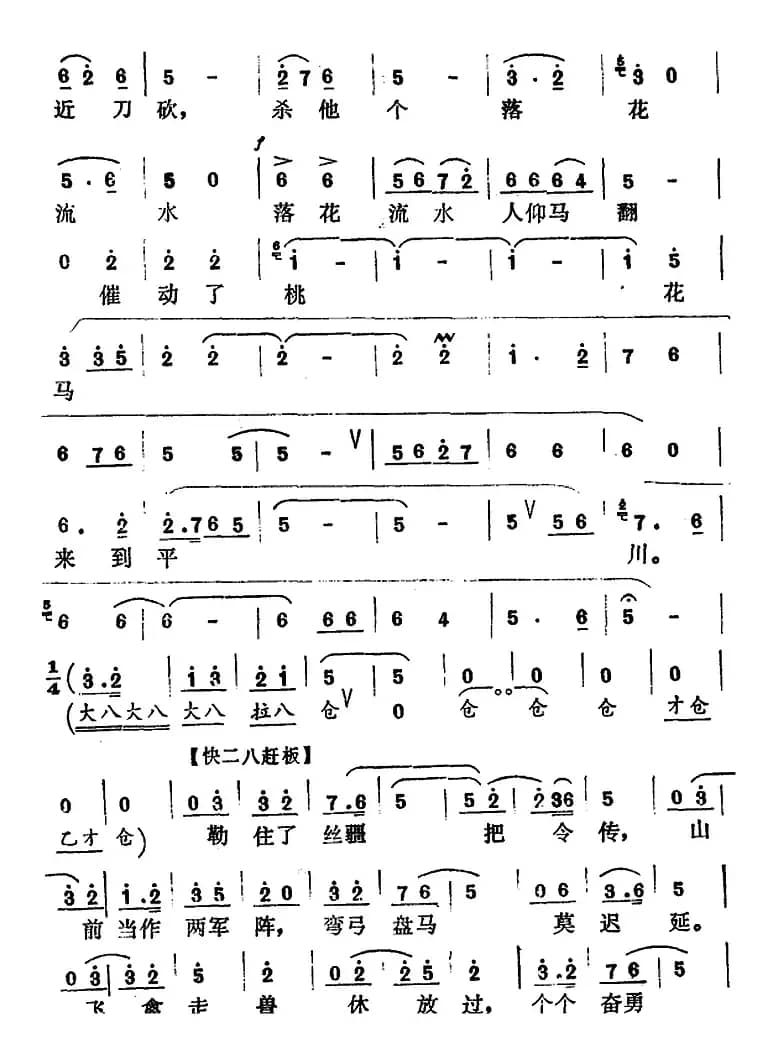 6 2 6 | 5 - | 2 7 6 | 5 - | 3 . 2 | 3 0
近 刀 砍, 杀 他 个 落 花
f
5 . 6 | 5 0 | 6 6 | 5 6 7 2 | 6 6 6 4 | 5 - |
流 水 落 花 流 水 人仰马 翻
0 2 | 2 2 | 1 - | 1 - | 1 - | 1 5 |
催 动 了 桃 花
3 3 5 | 2 2 | 2 - | 2 2 | 1 . 2 | 7 6 |
马
6 7 6 | 5 5 | 5 - V | 5 6 2 7 | 6 6 | 6 0 |
6 . 2 | 2 . 7 6 5 | 5 - | 5 - | 5 V 5 6 | 7 . 6 |
来 到 平 川。
6 6 | 6 - | 6 6 6 | 6 4 | 5 . 6 | 5 - |
1/4 ( 3 . 2 | 1 3 | 2 1 | 5 V | 5 | 0 | 0 | 0 | 0 |
(大八大八 大八 拉八 仓 0 仓 仓 仓 才仓
【快二八赶板】
0 | 0 | 0 3 | 3 2 | 7 . 6 | 5 | 5 2 | 2 3 6 | 5 | 0 3 |
乙才 仓) 勒 住了 丝疆 把 令 传, 山
3 2 | 1 . 2 | 3 5 | 2 0 | 3 2 | 7 6 | 5 | 0 6 | 3 . 6 | 5
前 当作 两军 阵, 弯弓 盘马 莫 迟 延。
0 3 | 3 2 | 5 | 2 | 0 2 | 2 5 | 2 | 3 . 2 | 7 6 | 5 |
飞 禽 走 兽 休 放 过, 个个 奋勇